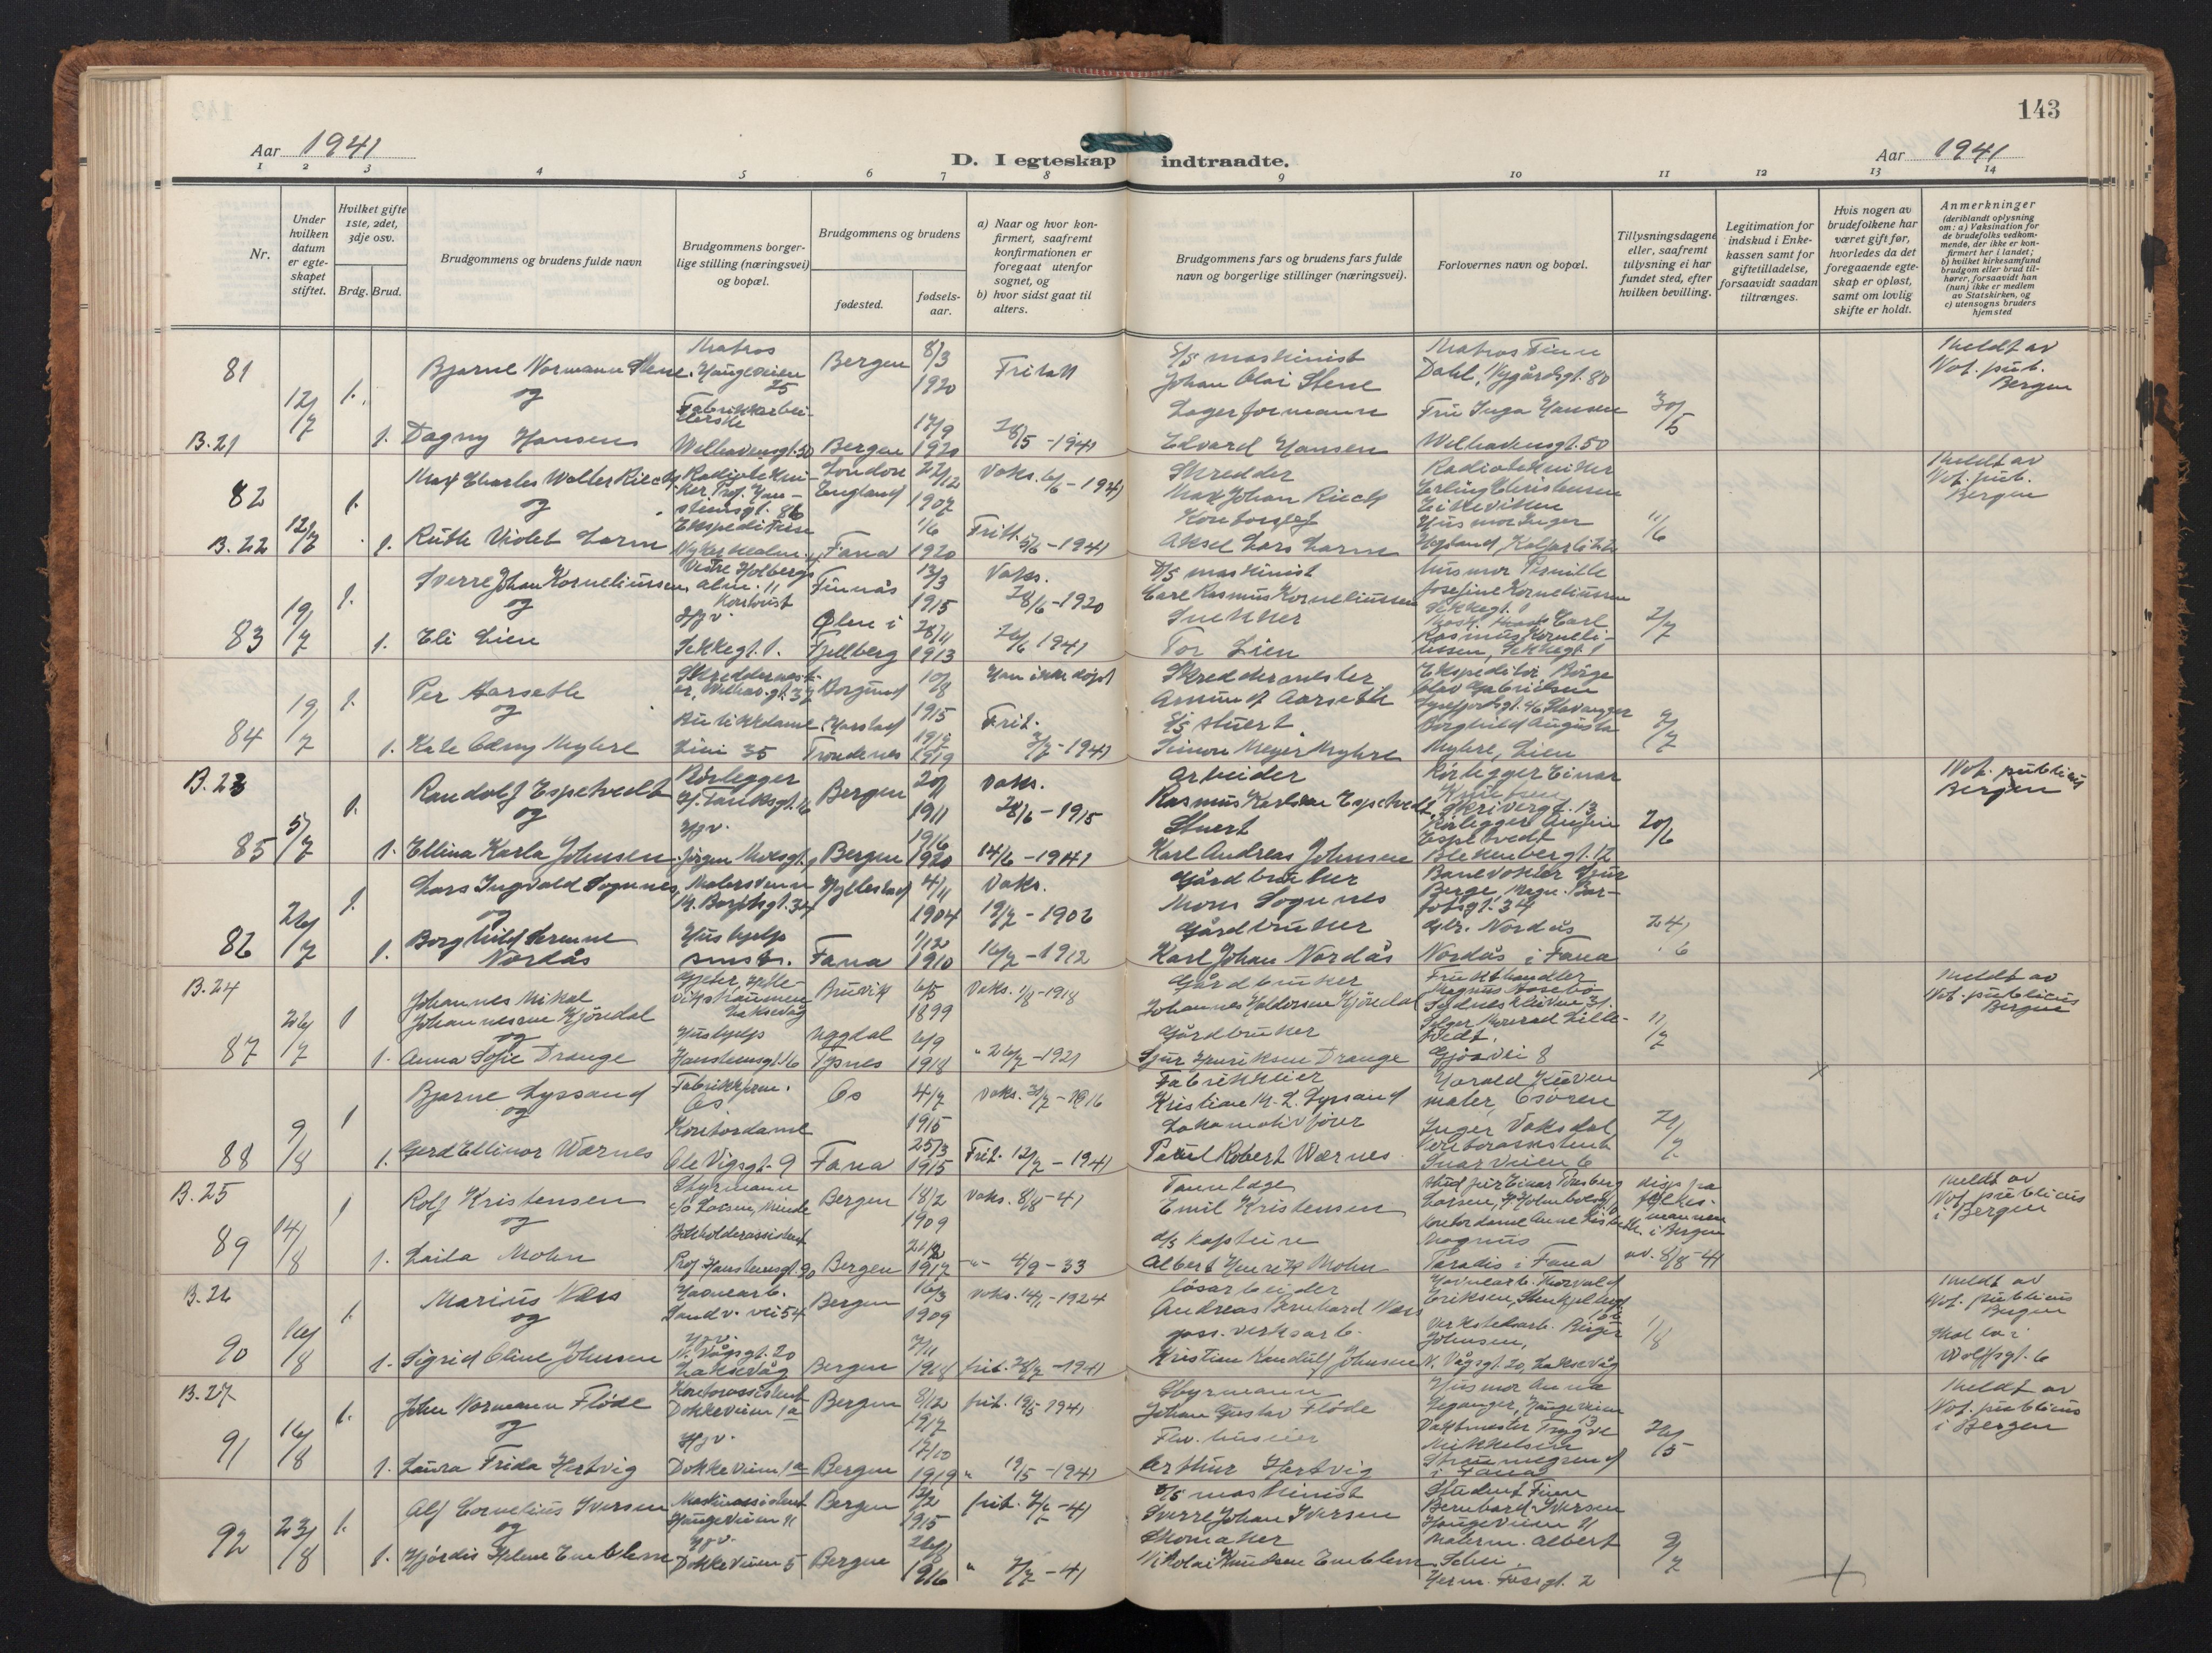 143
Aar 1941
D. I egteskap indtraadte.
Aar 1941
1 2 3 4 5 6 7 8 9 10 11 12 13 14
Nr.
Under hvilken datum er egteskapet stiftet.
Hvilket gifte 1ste, 2det, 3dje osv.
Brdg. Brud.
Brudgommens og brudens fulde navn
Brudgommens borgerlige stilling (næringsvei) og bopæl.
Brudgommens og brudens
fødested.
fødselsaar.
a) Naar og hvor konfirmert, saafremt konfirmationen er foregaat utenfor sognet, og
b) hvor sidst gaat til alters.
Brudgommens fars og brudens fars fulde navn og borgerlige stillinger (næringsvei).
Forlovernes navn og bopæl.
Tillysningsdagene eller, saafremt tillysning ei har fundet sted, efter hvilken bevilling.
Legitimation for indskud i Enkekassen samt for giftetilladelse, forsaavidt saadan tiltrænges.
Hvis nogen av brudefolkene har været gift før, hvorledes da det foregaaende egteskap er opløst, samt om lovlig skifte er holdt.
Anmerkninger
(deriblandt oplysning om: a) Vaksination for de brudefolks vedkommende, der ikke er konfirmert her i landet;
b) hvilket kirkesamfund brudgom eller brud tilhører, forsaavidt han (hun) ikke er medlem av Statskirken, og
c) utensogns bruders hjemsted
81 12/7 1. Bjarne Normann Stene Matros Haugeveien 25 Bergen 8/3 1920 Fritatt
S/S maskinist Johan Olai Stene Matros Finn Dahl, Nygårdsgt. 80
Meldt av Not. pub. Bergen
og
B. 21 1. Dagny Hansen Fabrikkarbeiderske Welhavensgt. 50 Bergen 17/9 1920 28/5 - 1941
Lagerformann Edvard Hansen Fru Inga Hansen Welhavensgt. 50 30/5
82 12/7 1. Max Charles Walter Riech London England 22/12 1907 Vaks. 6/6 - 1941
Skredder Max Johan Riech Radiotekniker Erling Christensen Eikeviken
Meldt av Not. pub. Bergen
og
B. 22 1. Ruth Violet Larm Ekspeditrise Fana 1/6 1920 Fritt. 5/6 - 1941
Kontorsjef Aksel Lars Larm Husmor Inger 11/6
83 19/7 1. Sverre Johan Korneliussen Vestre Holbergsalm. 11 Kontorist Finnås 13/3 1915 Vaks. 28/6 - 1920
D/S maskinist Carl Rasmus Korneliussen husmor Pernille Josefine Korneliussen Sekkegt. 1
og
1. Eli Lien Hgv. Sekkegt. 1. Ølen i Fjellberg 28/11 1913 26/6 1941
Snekker Tor Lien Mask. Carl Rasmus Korneliussen, Sekkegt. 1 2/7
84 19/7 1. Per Aarseth Skreddermester, Welhav.gt. 37 Borgund 10/8 1915 Han ikke døpt
Skreddermester Asmund Aarseth Ekspeditør Børge Olav Gabrielsen Stavanger
og
1. Kate Odny Myhre Butikkdame Lien 35 Harstad Trondenes 1919 Frit. 3/7 - 1941
S/S stuert Simon Meyer Myhre Borghild Augusta Myhre, Lien 9/7
B. 23
85 5/7 1. Randolf Espetvedt Rørlegger Bergen 20/1 1911 Vaks. 28/6 - 1915
Arbeider Rasmus Karlsen Espetvedt Rørlegger Einar Knutsen Skrivergt. 13
Not. publicus Bergen
og
1. Ellina Karla Johnsen Hgv. Jørgen Moesgt. Bergen 19/6 1920 14/6 - 1941
Stuert Karl Andreas Johnsen Rørlegger Espetvedt Blekenberg 12 20/6
86 26/7 1. Lars Ingvald Sognnes Malersvenn M. Barfotsgt. 34 Hyllestad 4/11 1904 Vaks. 19/7 - 1906
Gårdbruker Mons Sognnes Banevokter Sjur Berge, Magn. Barfotsgt. 34
og
1. Borghild Serine Nordås Hushjelp smsts. Fana 1/12 1910 16/7 - 1912
Gårdbruker Karl Johan Nordås Gbr. Nordås Nordås i Fana 24/6
B. 24
87 26/7 1 Johannes Mikal Johannessen Hjørdal Laksevåg Bruvik 6/5 1899 Vaks. 1/8 - 1918
Gårdbruker Johannes Haldorsen Hjørdal Frukthandler Magnus Aasebø Sydneskleiven 31
Meldt av Not. publicus Bergen
og
1. Anna Sofie Drange Hushjelp Hansteensgt. 16 Uggdal Tysnes 6/9 1918 " 26/7 - 1921
Gårdbruker Sjur Henriksen Drange Selger Konrad Lilletvedt. Gjøsvei 8 11/7
88 9/8 1 Bjarne Lyssand Os Os 4/7 1915 Vaks. 31/7 - 1916
Fabrikkeier Kristian M. L. Lyssand Harald Kleven maler, Osøren
og
1. Gerd Ellinor Wærnes Kontordame Ole Vigsgt. 9 Fana 25/3 1915 Frit. 12/7 - 1941
Lokomotivfører Paul Robert Wærnes Inger Vaksdal Kontorassistent Snarveien 6 21/7
B. 25
89 14/8 1 Rolf Kristensen Styrmann c/o Larsen, Minde Bergen 18/2 1909 Vaks. 8/8 - 41
Tannlæge Emil Kristensen Stud. jur Einar Larsen, disp. fra fylkesmannen i Bergen av. 8/8 - 41
Meldt av Not. publicus i Bergen
og
1. Laila Mohn Bokholderassistent Prof. Hansteensgt. 90 Bergen 21/2 1917 -"- 4/9 - 33
d/s kaptein Albert Henrik Mohn Kontordame Anne Lisbeth Magnus Paradis i Fana
B. 26
90 16/8 1. Marius Næss Havnearb. Sandv. vei 54 Bergen 16/3 1909 Vaks. 14/1 - 1924
løsarbeider Andreas Bernhard Næss Havnearb. Thorvald Eriksen,
Meldt av Not. publicus Bergen
Skal bo i Wolffsgt. 6
og
1. Sigrid Oline Johnsen Hgv. N. Vågsgt. 20 Laksevåg Bergen 7/11 1918 frit. 28/7 - 1941
gass. verksarb. Kristian Randulf Johnsen Verkstedsarb. Birger Johnsen, N. Vågsgt. 20, Laksevåg 1/8
B. 27
91 16/8 1. John Normann Fløde Kontorassistent Dokkeveien 1a Bergen 8/12 1917 frit. 19/5 - 1941
Styrmann Johan Gustav Fløde Husmor Anna Leganger, Haugeveien 13
Meldt av Not. publicus i Bergen
og
1. Laura Frida Hertvig Hgv. Dokkeveien 1a Bergen 17/10 1919 " 19/5 - 1941
Arthur Hertvig Vaktmester Trygve Mikkelsen i Fana 20/5
92 23/8 1. Alf Cornelius Iversen Maskinassistent Haugeveien 41 Bergen 12/2 1915 frit. 7/7 - 41
S/S maskinist Sverre Johan Iversen Student Finn Bernhard Iversen Haugeveien 41
og
1. Hjørdis Helene Emblem Hgv. Dokkeveien 5 Bergen 26/8 1916 " 7/7 - 41
Skomaker Nikolai Knudsen Emblem Malerm. Albert Herm. Fossgt. 2 9/7